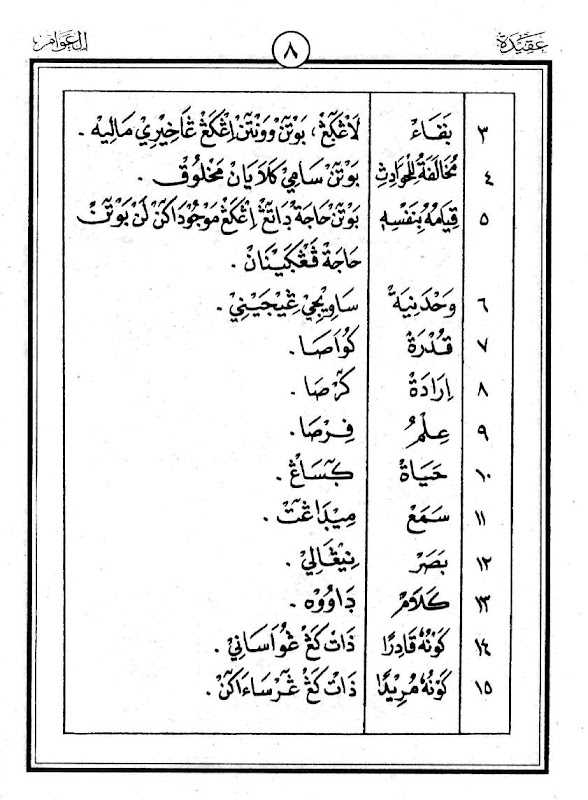 عقيدة ٨ العوام
٣ بَقَاءْ لَاڠْڮٓڠْ، بَوْتٓنْ وَوْنْتٓنْ اِڠْكَڠْ ڠَاخِيْرِيْ مَالِيْهْ.
٤ مُخَالَفَةْ لِلْحَوَادِثِ بَوْتٓنْ سَامِيْ كَلَايَانْ مَخْلُوْقْ.
٥ قِيَامُهُ بِنَفْسِهِ بَوْتٓنْ حَاجَةْ دَاتٓڠْ اِڠْكَڠْ مَوْجُوْدَاكٓنْ لَنْ بَوْتٓنْ
حَاجَةْ ڤَڠْڮٓيْنَانْ.
٦ وَحْدَنِيَةْ سَاوِيْجِيْ ڠِيْجَيْنِيْ.
٧ قُدْرَةْ كُوَاصَا.
٨ اِرَادَةْ كٓرْصَا.
٩ عِلْمُ فِرْصَا.
١٠ حَيَاةْ ڮٓسَاڠْ.
١١ سَمَعْ مِيْدَاڠٓتْ.
١٢ بَصَرْ نِيْڠَالِيْ.
١٣ كَلَامْ دَاوُوْهْ.
١٤ كَوْنُهُ قَادِرًا ذَاتْ كَڠْ ڠُوَاسَانِيْ.
١٥ كَوْنُهُ مُرِيْدًا ذَاتْ كَڠْ ڠٓرْسَاءَاكٓنْ.